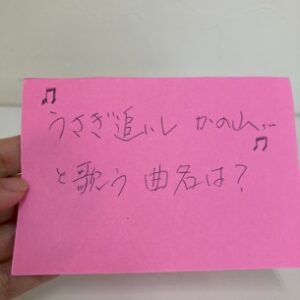 ♫
うさぎ追いし かの山…
♫
と歌う 曲名は?